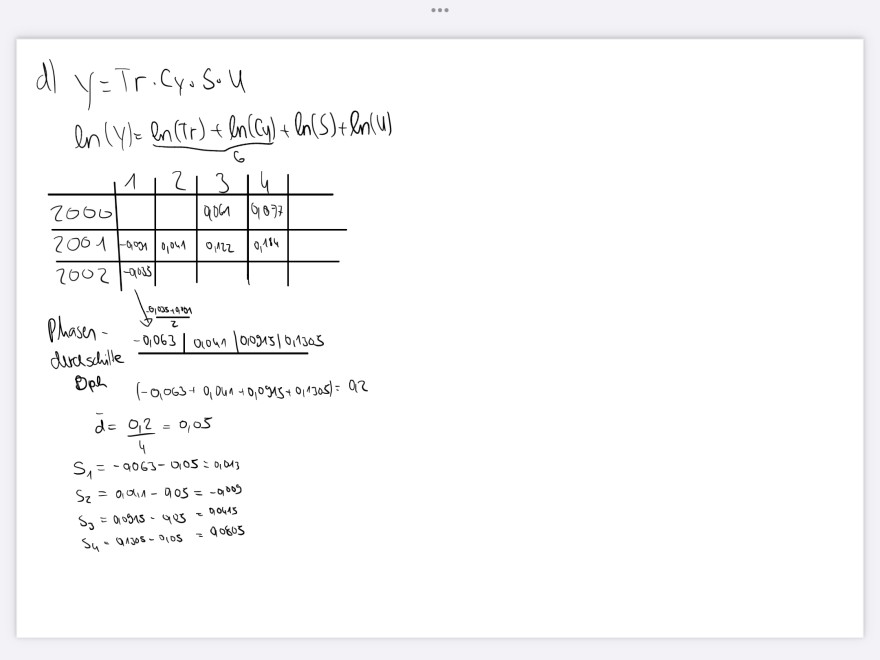 d) Y = Tr · Cy · S · U
ln(Y) = ln(Tr) + ln(Cy) + ln(S) + ln(U)
G
1 2 3 4
2000 0,061 0,077
2001 -0,091 0,041 0,122 0,184
2002 -0,035
2
Phasen- -0,063 | 0,041 | 0,0915 | 0,1305
Dph (-0,063 + 0,041 + 0,0915 + 0,1305) = 0,2
d̄ = 0,2/4 = 0,05
S₁ = -0,063 - 0,05 = 0,013
S₂ = 0,041 - 0,05 = -0,009
S₃ = 0,0915 - 0,05 = 0,0415
S₄ = 0,1305 - 0,05 = 0,0805